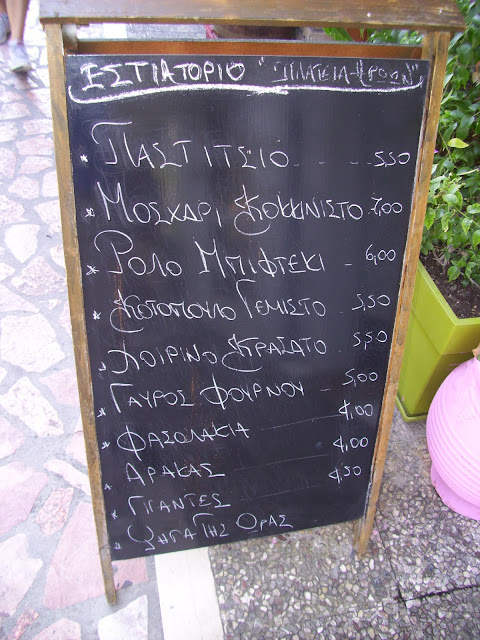 ΕΣΤΙΑΤΟΡΙΟ "ΠΛΑΤΕΙΑ ΗΡΩΩΝ"
* ΠΑΣΤΙΤΣΙΟ - - - 5,50
* ΜΟΣΧΑΡΙ ΚΟΚΚΙΝΙΣΤΟ 7,00
* ΡΟΛΟ ΜΠΙΦΤΕΚΙ - 6,00
* ΚΟΤΟΠΟΥΛΟ ΓΕΜΙΣΤΟ - 5,50
* ΧΟΙΡΙΝΟ ΚΡΑΣΑΤΟ - 5,50
* ΓΑΥΡΟΣ ΦΟΥΡΝΟΥ - 5,00
* ΦΑΣΟΛΑΚΙΑ 4,00
* ΑΡΑΚΑΣ 4,00
* ΓΙΓΑΝΤΕΣ 4,50
* ΨΗΤΑ ΤΗΣ ΩΡΑΣ